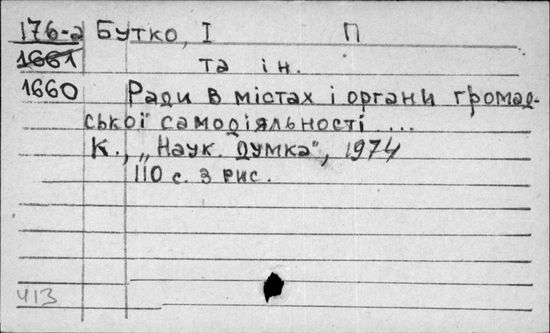 176-а Бутко, І П
1661 та ін.
1660 Ради в містах і органи громад-
ської самодіяльності ...
К., „Наук. думка", 1974
110 с. з рис.
413